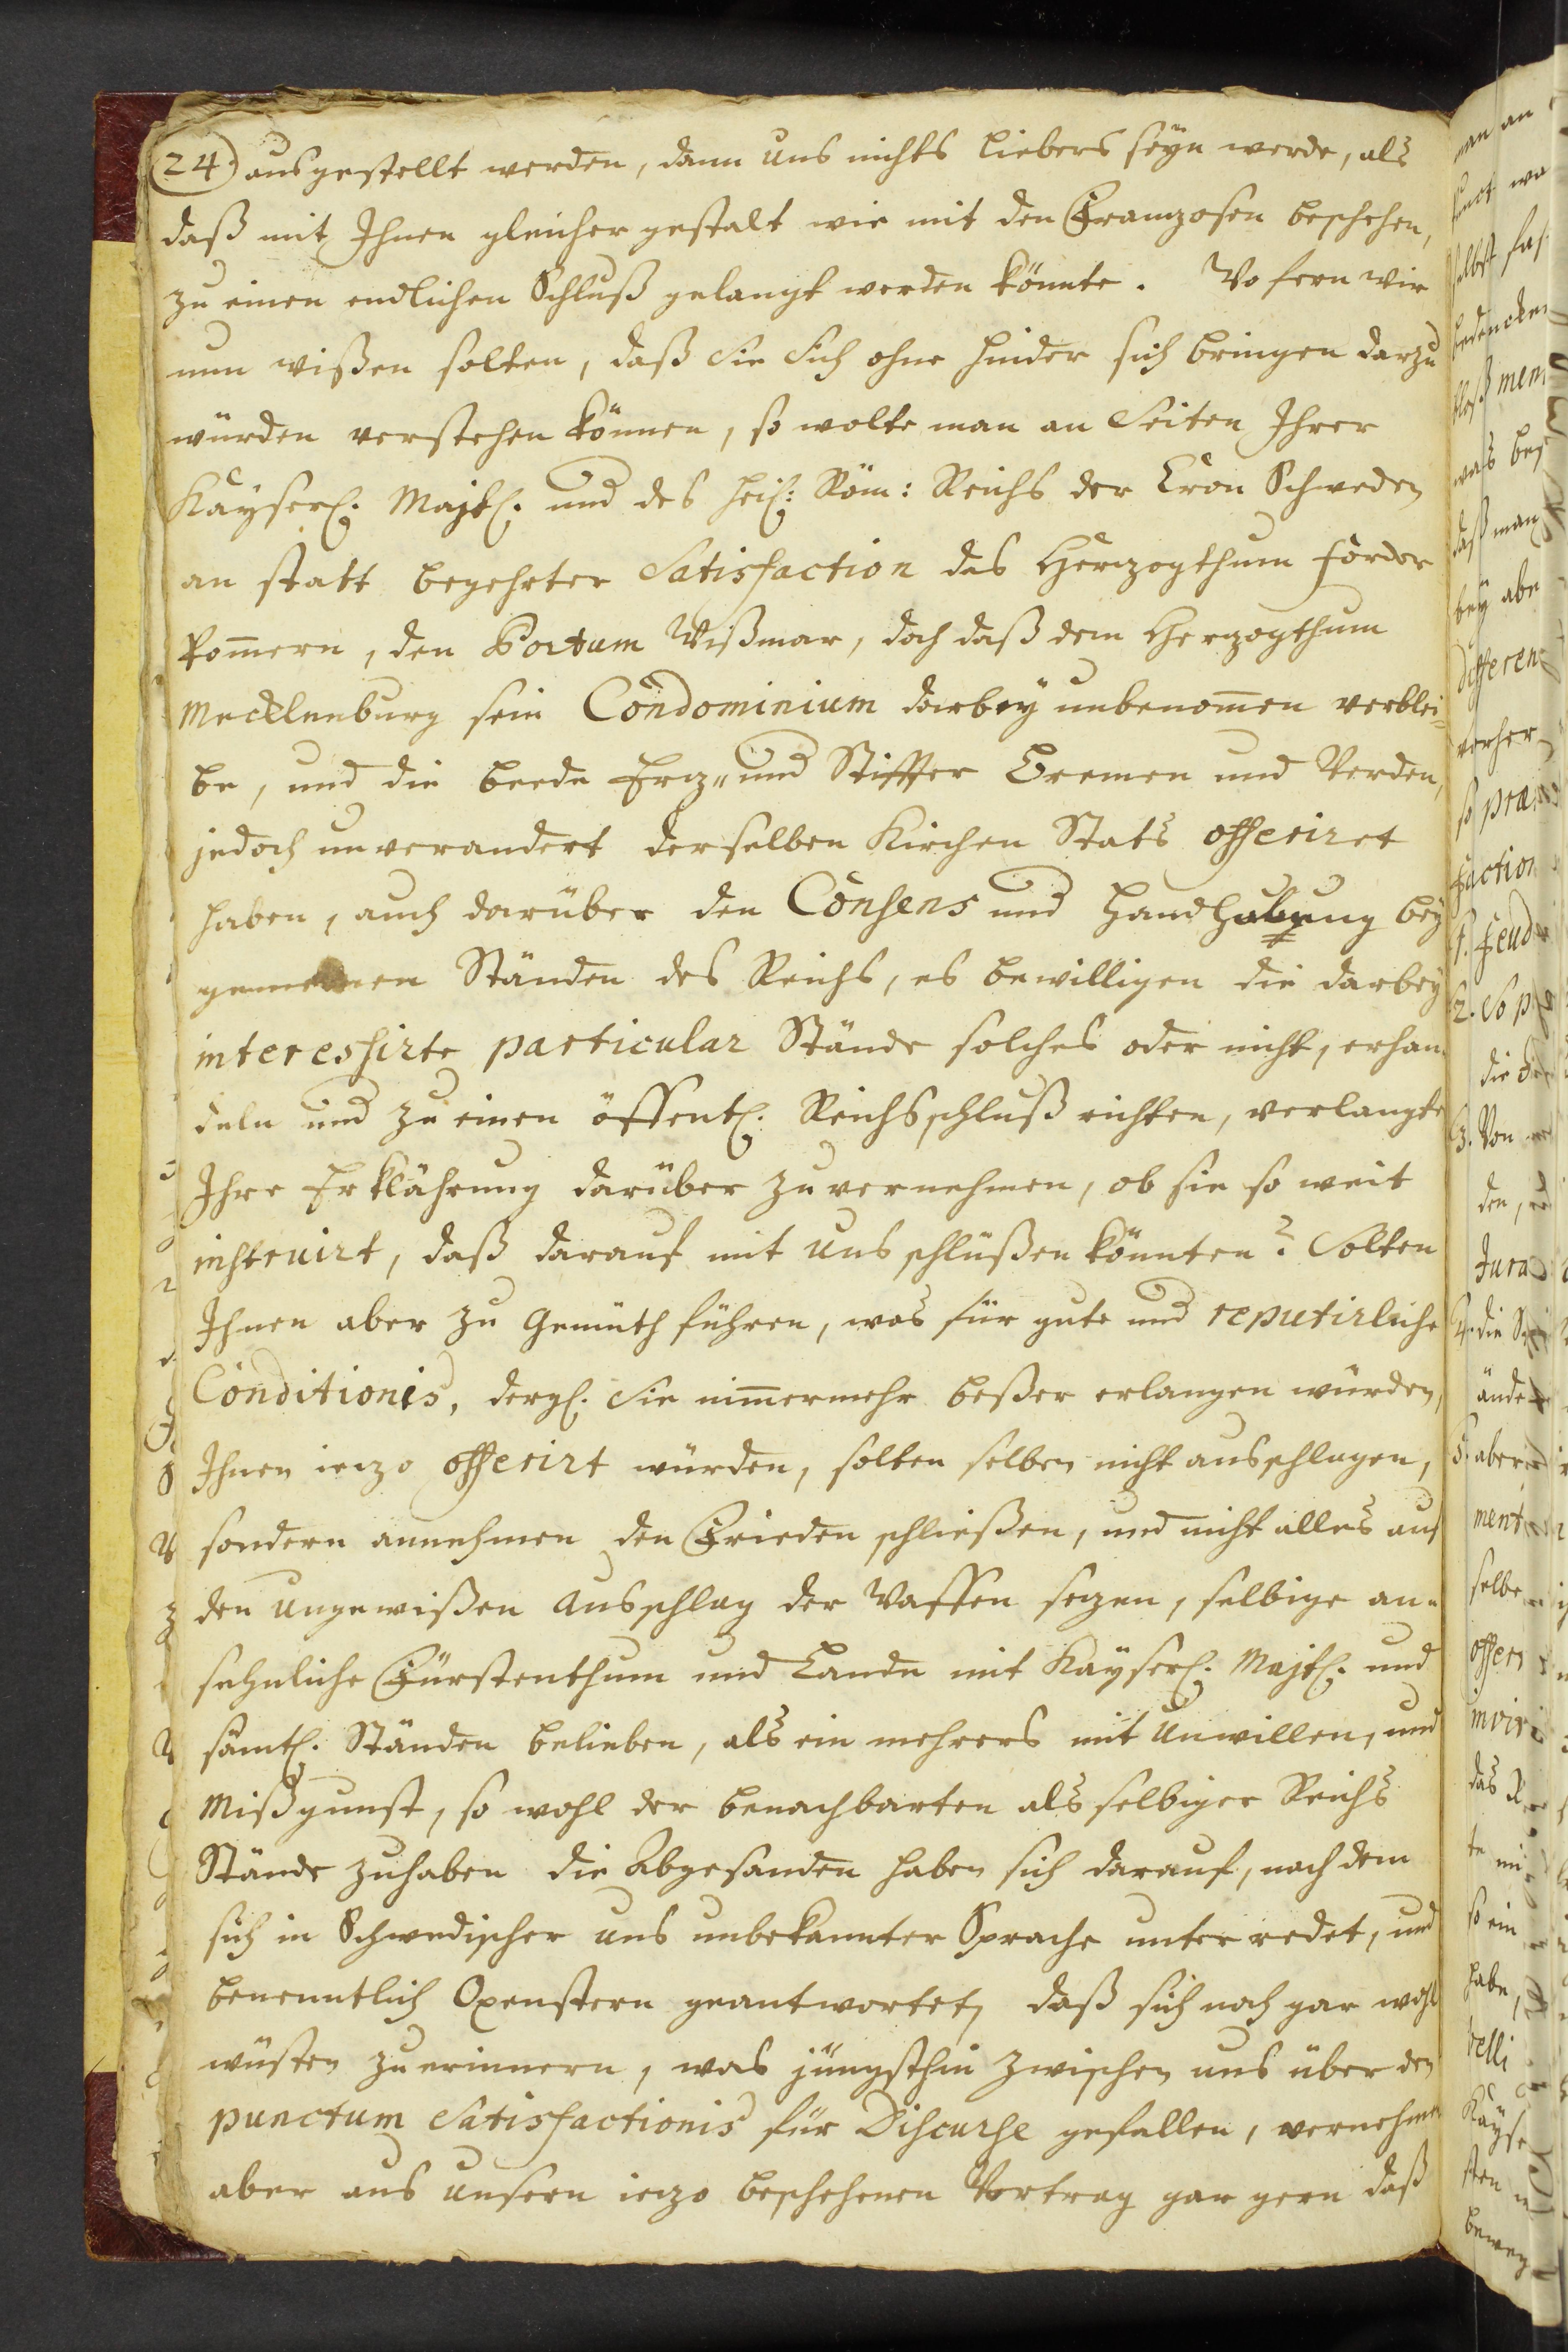 24. ausgestellt werden, dann Uns nichts liebers seÿn werde, als
daß mit Ihnen gleicher gestalt wie mit den Franzosen beschehen,
zu einen endlichen Schluß gelangt werden könnte. Wo fern wir
nun wißen solten, daß Sie Sich ohne hinder sich bringen darzu
würden verstehen können, so wolte man an Seiten Ihrer
Kaÿserl. Majtl. und des heil: Röm: Reichs der Cron Schweden
an statt begehrter Satisfaction das Herzogthum Forder
Pom̄ern, den Portum Wißmar, doch daß dem Herzogthum
Mecklenburg sein Condominium darbeÿ unbenom̄en verblei=
be, und die beede Erz= und Stiffter Bremen und Verden,
jedoch unverandert derselben Kirchen Stats offeriret
haben, auch darüber den Consens und Handhabung beÿ
gemeinen Ständen des Reichs, es bewilligen die darbeÿ
interessirte particular Stände solches oder nicht, erhan=
deln und zu einen öffentl. Reichsschluß richten, verlangte
Ihre Erklährung darüber zu vernehmen, ob sie so weit
instruirt, daß darauf mit Uns schlüßen könnten? Solten
Ihnen aber zu Gemüth führen, was für gute und reputirliche
Conditiones, dergl. Sie nim̄ermehr beßer erlangen würden,
Ihnen iezo offerirt würden, solten selben nicht ausschlagen,
sondern annehmen den Frieden schließen, und nicht alles auf
den Ungewißen Ausschlag der Waffen sezen, selbige an=
sehnliche Fürstenthum und Lande mit Kaÿserl. Majtl. und
sämtl. Ständen belieben, als ein mehrers mit Unwillen, und
Mißgunst, so wohl der benachbarten als selbiger Reichs
Stände zuhaben die Abgesanden haben sich darauf, nach dem
sich in Schwedischer uns unbekannter Sprache unterredet, und
benenntlich Oxenstern geantwortet, daß sich noch gar wohl
wüsten zu erinnern, was jüngsthin zwischen uns über den
punctum Satisfactionis für Discurse gefallen, vernehmen
aber aus Unsern iezo beschehenen Vortrag gar gern daß